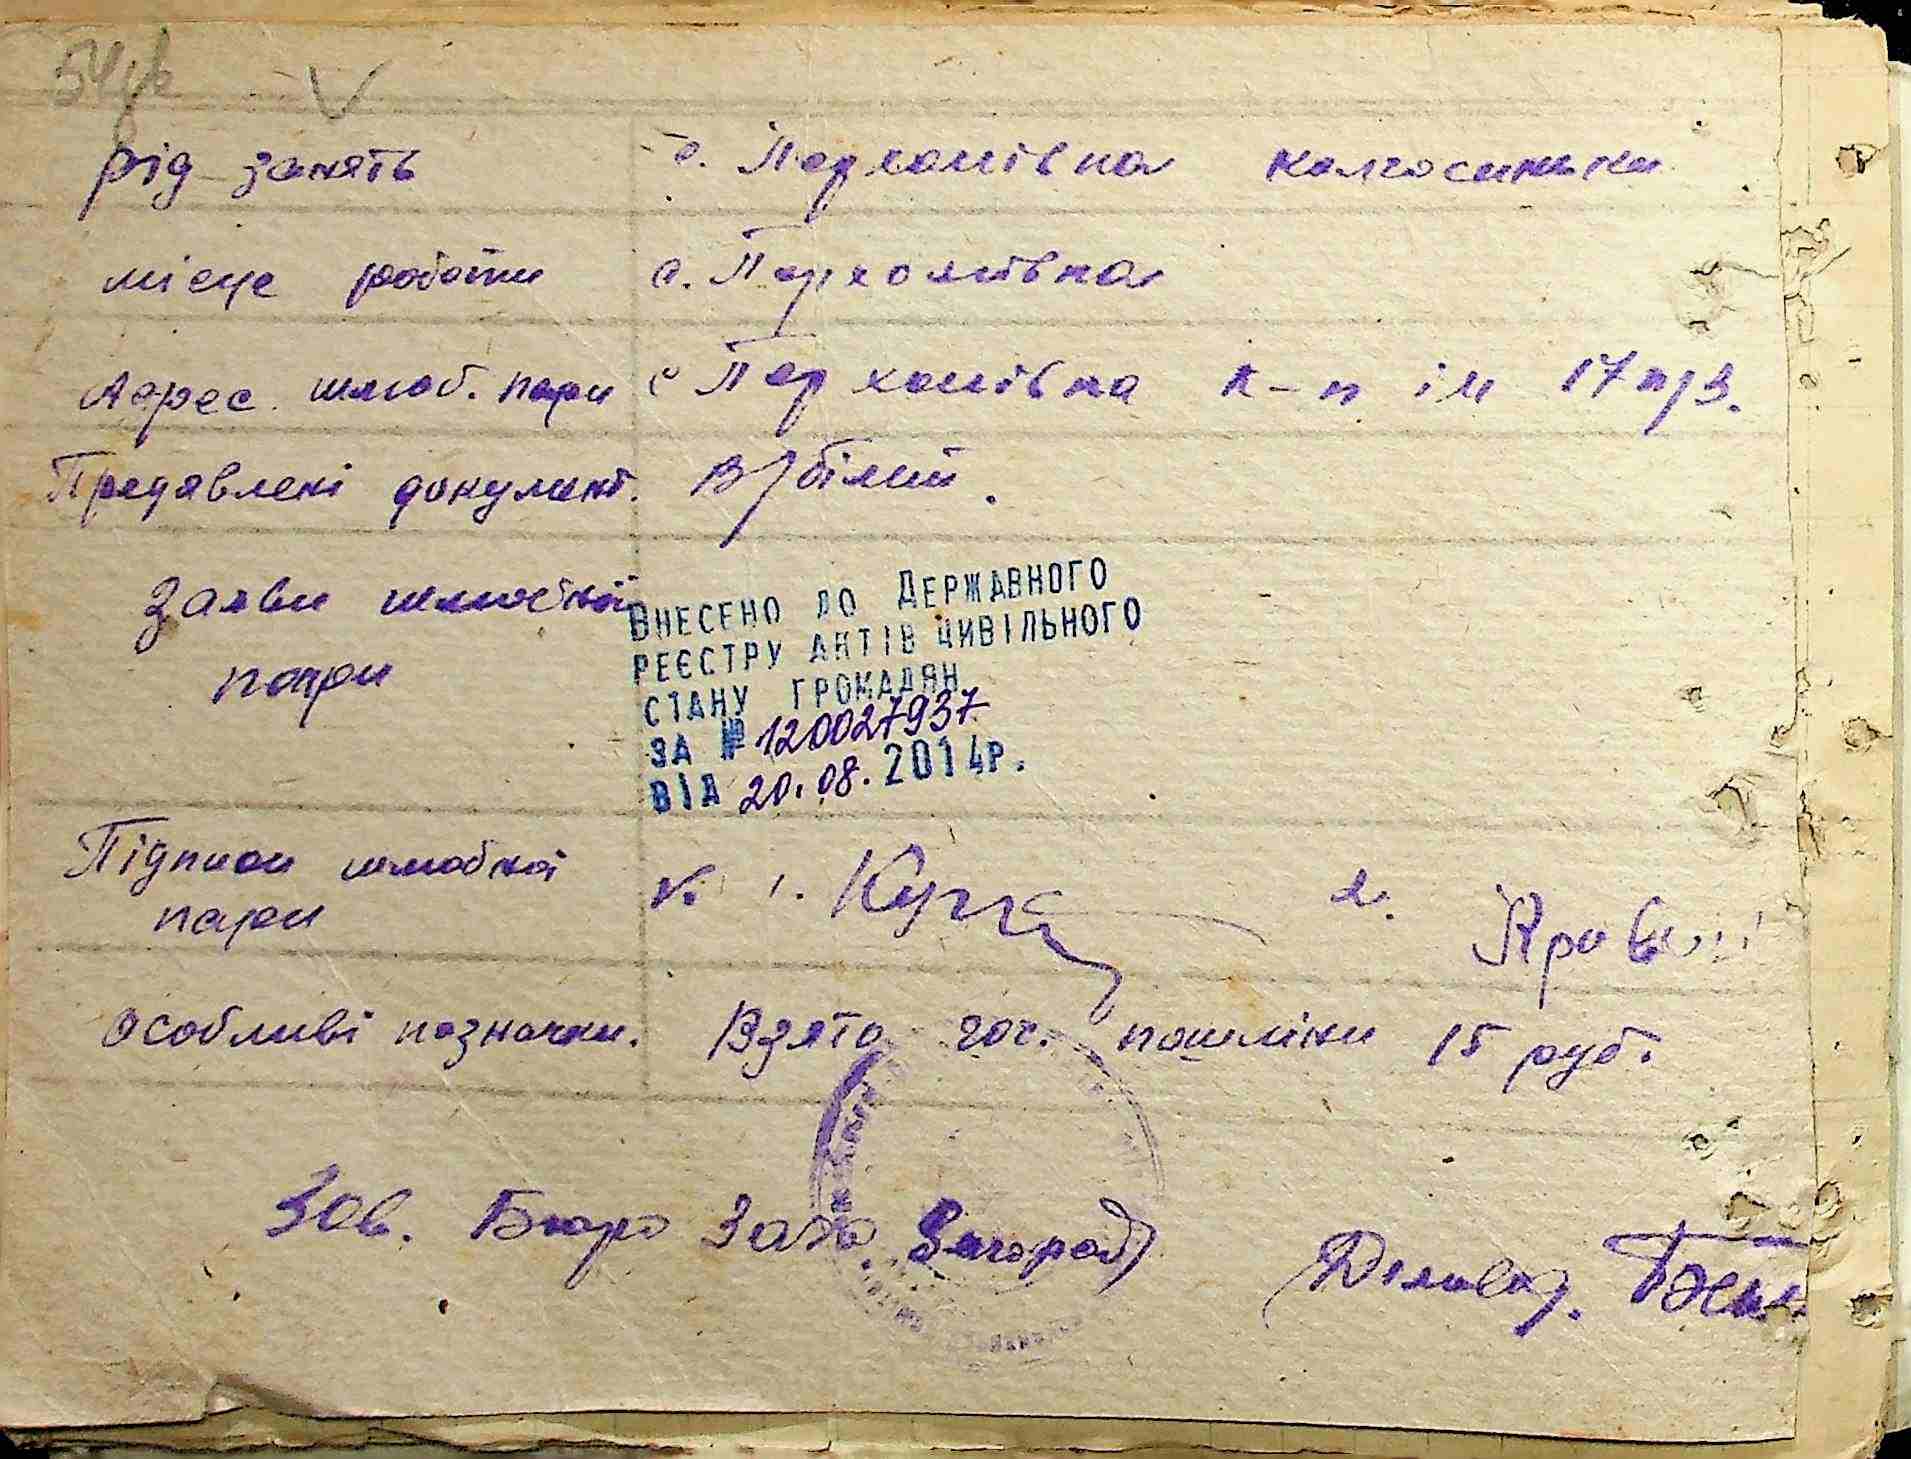 рід занять с. Пархомівка колгоспники
місце роботи с. Пархомівка
Адрес шлюб. пари с Пархомівка к-п ім 17 п/з.
Предявлені документ. В/білет.
Заяви шлюбної
пари
ВНЕСЕНО ДО ДЕРЖАВНОГО
РЕЄСТРУ АКТІВ ЦИВІЛЬНОГО
СТАНУ ГРОМАДЯН
ЗА № 120027937
ВІД 20.08.2014р.
Підписи шлюбної
пари 1. 2.
Особливі позначки. Взято гос. пошліни 15 руб.
Зав. Бюро Загс
Діловод.